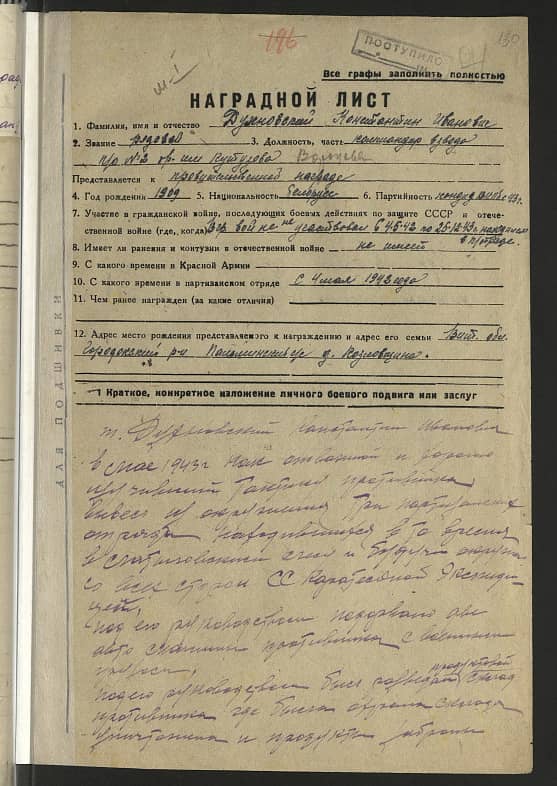 196
130
ПОСТУПИЛО
Все графы заполнить полностью
НАГРАДНОЙ ЛИСТ
1. Фамилия, имя и отчество Духновский Константин Иванович
2. Звание рядовой 3. Должность, часть командир взвода
п/о №2 бр. им Кутузова Воронова
Представляется к правительственной награде
4. Год рождения 1909 5. Национальность белорусс 6. Партийность
7. Участие в гражданской войне, последующих боевых действиях по защите СССР и отече-
ственной войне (где, когда) В гр. вой не не участвовал с 4.5.42 по 25.12.43г находился
в п/отряде.
8. Имеет ли ранения и контузии в отечественной войне не имеет
9. С какого времени в Красной Армии
10. С какого времени в партизанском отряде с 4 мая 1942 года
11. Чем ранее награжден (за какие отличия)
12. Адрес место рождения представляемого к награждению и адрес его семьи Вит. обл.
Городокский р-н д. Козловщина.
Краткое, конкретное изложение личного боевого подвига или заслуг
т. Духновский Константин Иванович
в мае 1943г как отважной и хорошо
изучивший тактику противника
вывел из окружения три партизанских
отряда находившихся в то время
в и будучи
со всех сторон СС карательной экспеди
цией,
под его руководством подорвано две
авто машины противника с военным
грузом,
под его руководством был продуктовой склад
противника где была охрана склада
уничтожена и продукты забраны
ДЛЯ ПОДШИВКИ